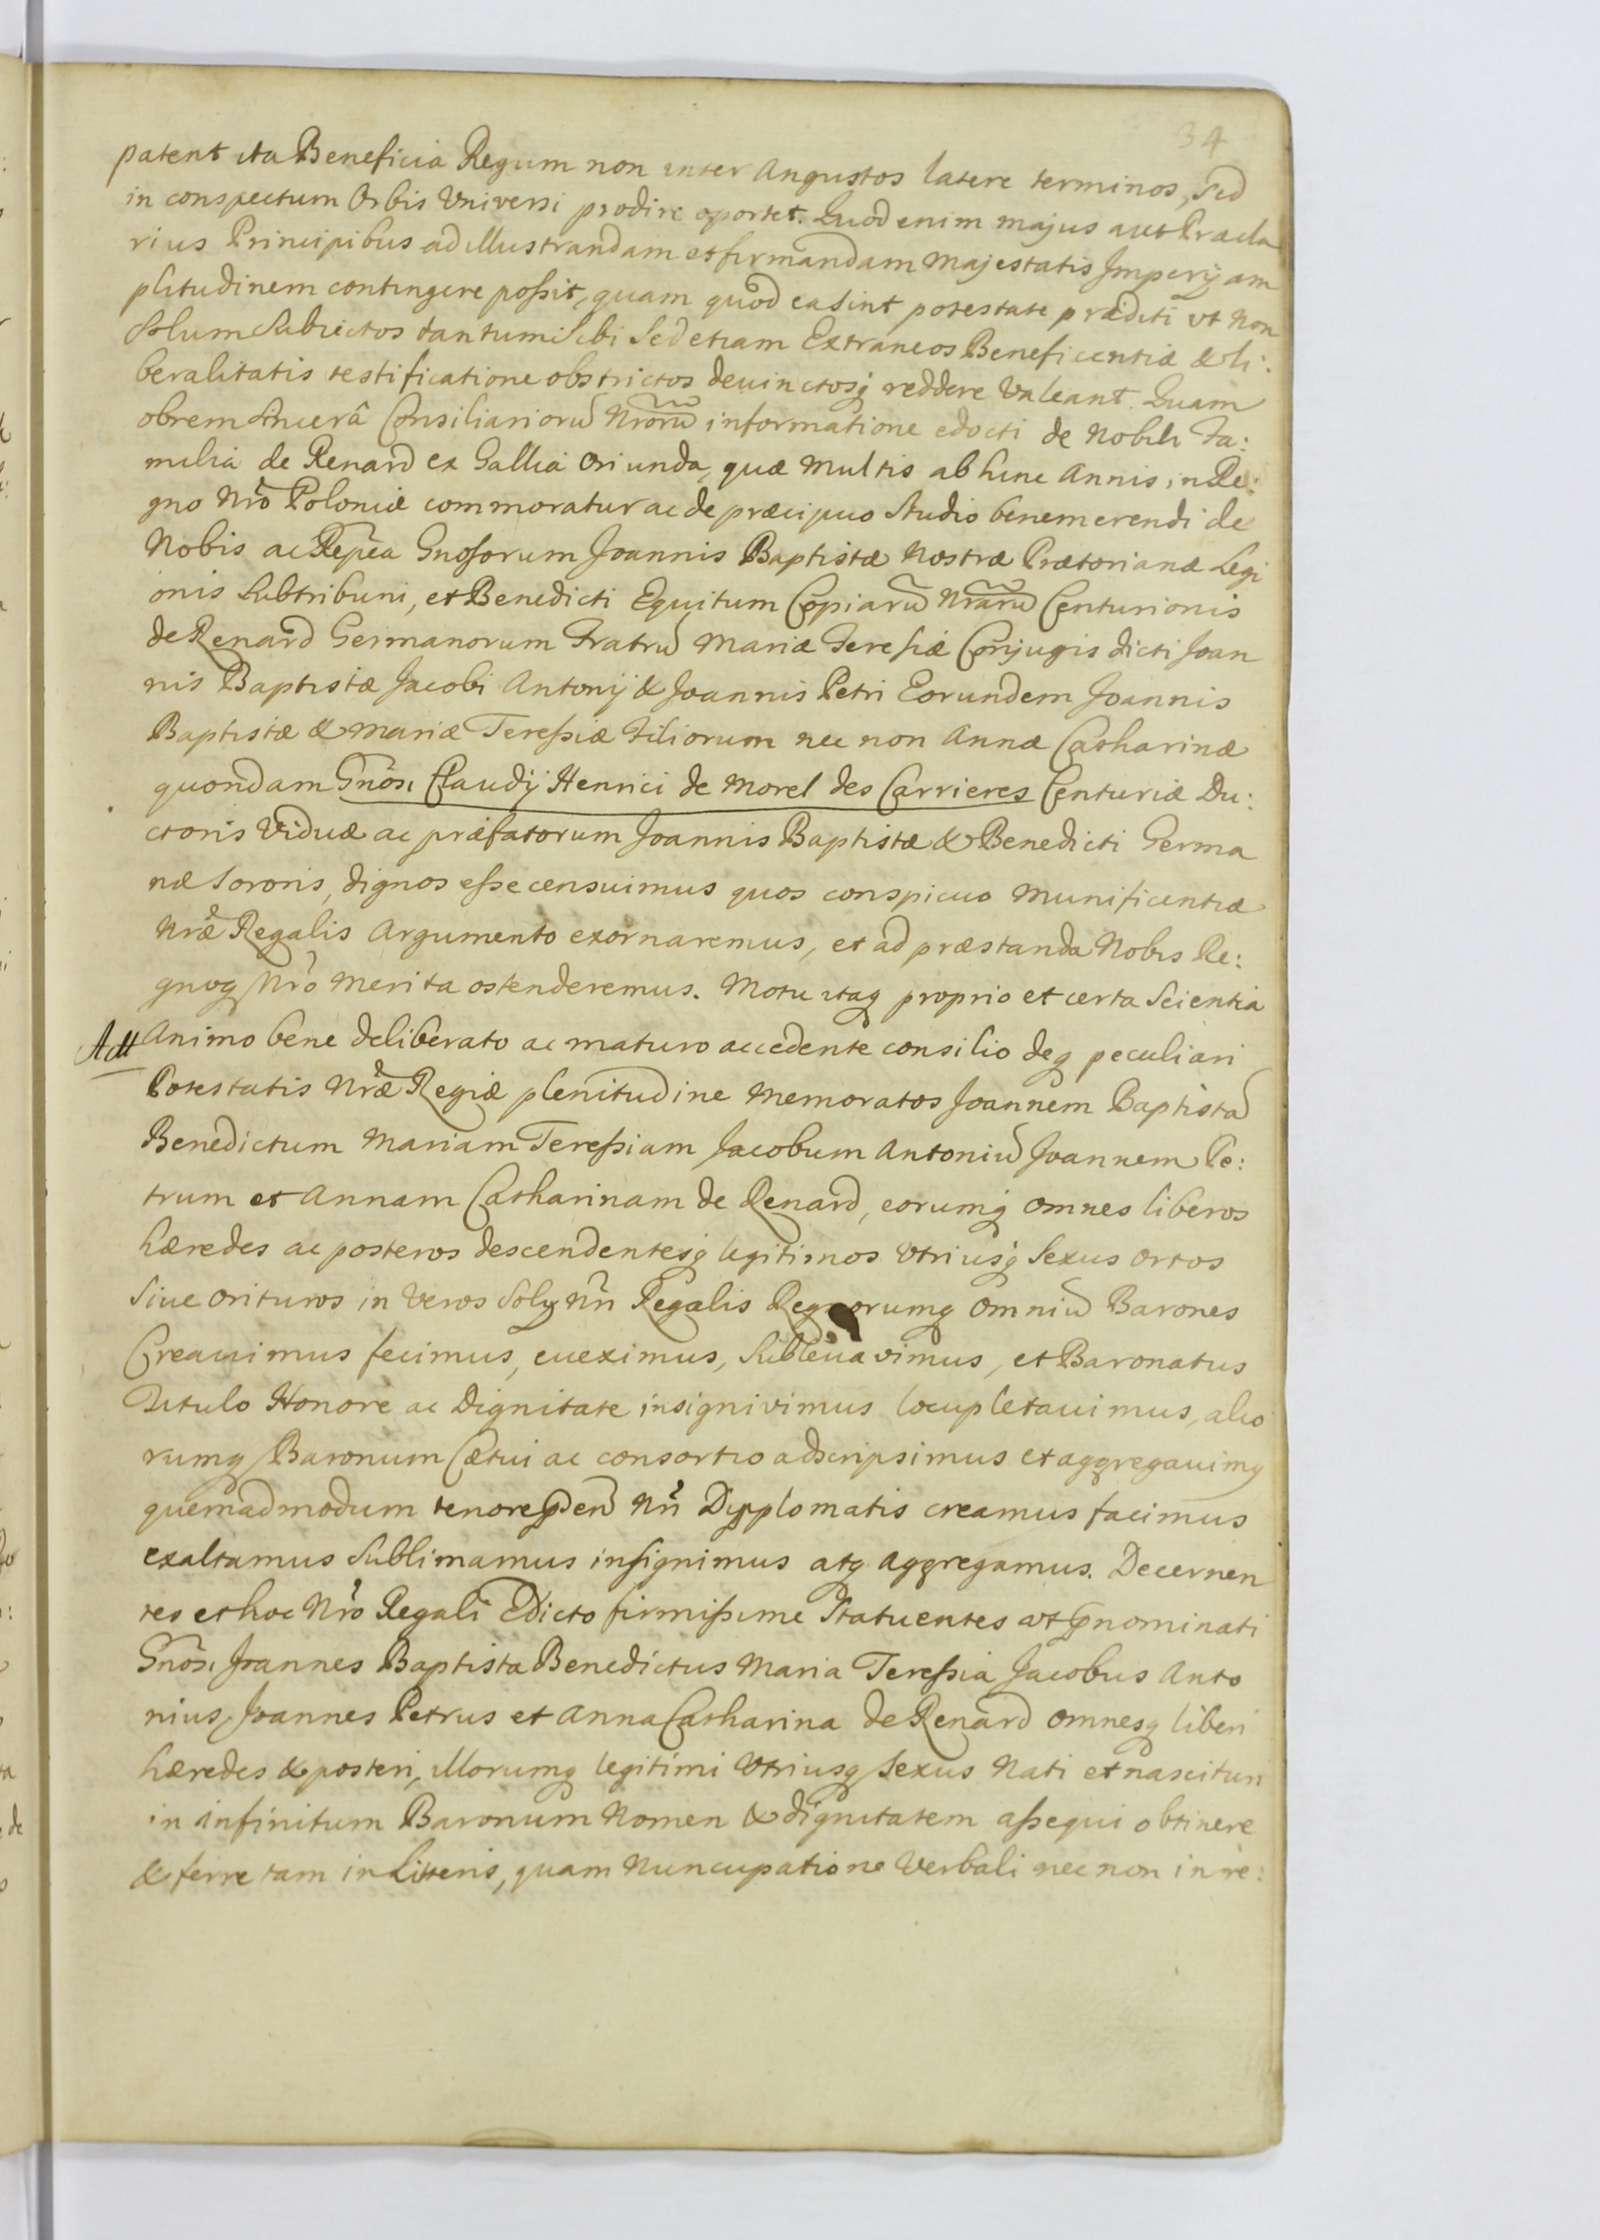 34
patent ita Beneficia Regum non inter Angustos latere terminos, sed
in conspectum Orbis Universi prodire oportet. Quod enim majus aut Præcla
rius Principibus ad illustrandam et firmandam Majestatis Imperij am
plitudinem contingere possit, quam quod ea sint potestate præditi vt Non
Solum Subiectos tantum Sibi Sed etiam Extraneos Beneficentiæ & li:
beralitatis testificatione obstrictos deuinctosq reddere Valeant. Quam
obrem Sincerâ Consiliariorū Nrorū informatione edocti de Nobili Fa:
milia de Renard ex Gallia Oriunda, quæ Multis ab hinc Annis in Re:
gno Nrõ Poloniæ commoratur ac de præcipuo Studio benemerendi de
Nobis ac Repca Gnosorum Joannis Baptistæ Nostræ Prætorianæ Legi
onis Subtribuni, et Benedicti Equitum Copiarū Nrarū Centurionis
de Renard Germanorum Fratrū Mariæ Teresiæ Conjugis dicti Joan
nis Baptistæ Jacobi Antonij & Joannis Petri Eorundem Joannis
Baptistæ & Mariæ Teressiæ Filiorum nec non Annæ Catharinæ
quondam Gnõsi Claudij Henrici de Morel des Carrieres Centuriæ Du:
ctoris Viduæ ac præfatorum Joannis Baptistæ & Benedicti Germa
næ Sororis, dignos esse censuimus quos conspicuo Munificentiæ
Nræ Regalis Argumento exornaremus, et ad præstanda Nobis Re:
gnoq Nrõ Merita ostenderemus. Motu itaq proprio et certa Scientia
Animo bene deliberato ac maturo accedente consilio deq peculiari
Potestatis Nræ Regiæ plenitudine Memoratos Joannem Baptistā
Benedictum Mariam Teressiam Jacobum Antoniū Joannem Pe:
trum et Annam Catharinam de Renard, eorumq omnes liberos
hæredes ac posteros descendentesq legitimos Vtriusq Sexus ortos
Siue Orituros in Veros Solij Nri Regalis Regnorumq Omniū Barones
Creauimus fecimus, eueximus, Subleuavimus, et Baronatus
Titulo Honore ac Dignitate insignivimus locupletauimus, alio
rumq Baronum Cætui ac consortio adscripsimus et aggregauimq
quemadmodum tenore psen Nri Dyplomatis creamus facimus
exaltamus Sublimamus insignimus atq Aggregamus. Decernen
tes et hoc Nrõ Regali Edicto firmissime Statuentes vt pnominati
Gnõsi Joannes Baptista Benedictus Maria Teressia Jacobus Anto
nius, Joannes Petrus et Anna Catharina de Renard Omnesq liberi
hæredes & posteri, illorumq legitimi Vtriusq Sexus Nati et nascituri
in infinitum Baronum Nomen & dignitatem assequi obtinere
& ferre tam in Litteris, quam Nuncupatione Verbali nec non in re: